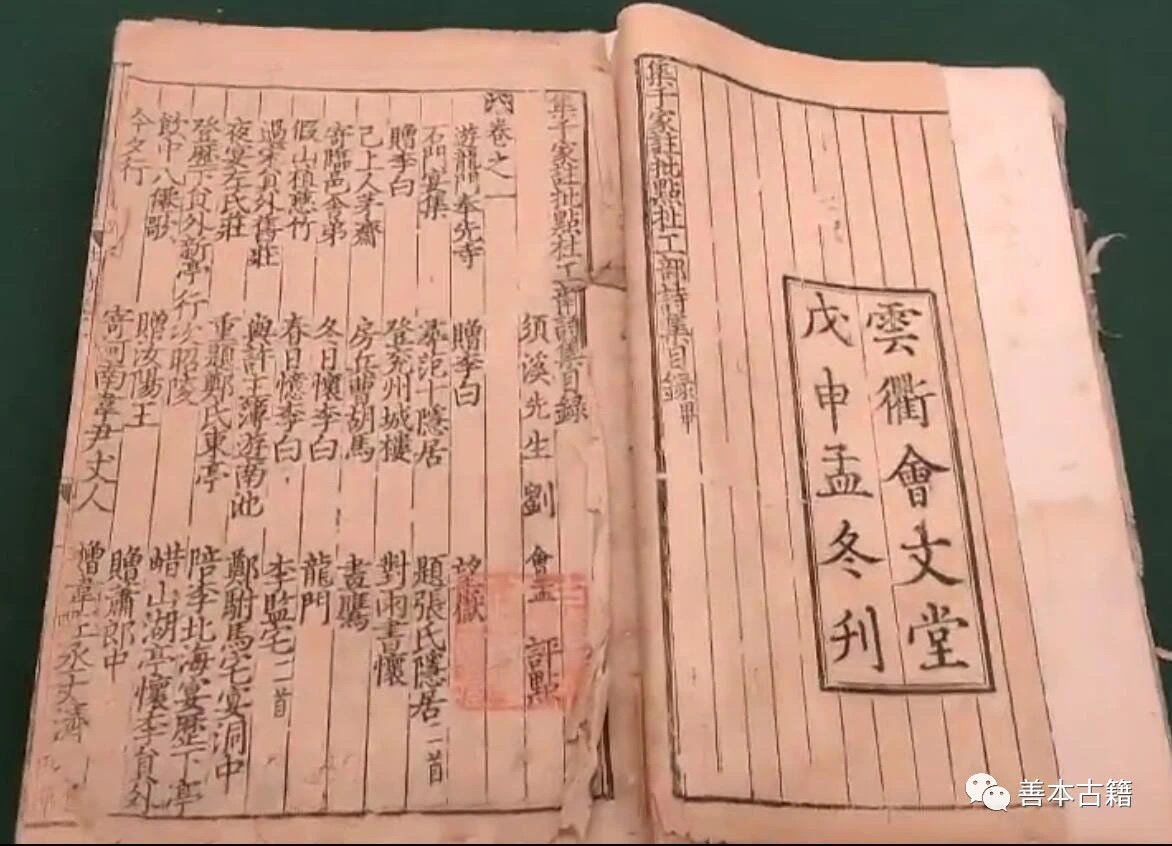 集千家註批點杜工部詩集目録畢
雲衢會文堂
戊申孟冬刊
集千家註批點杜工部詩集目録
須溪先生劉 會孟 評點
卷之一
遊龍門奉先寺 贈李白 望嶽
石門宴集 范十隱居 題張氏隱居二首
贈李白 登兗州城樓 對雨書懷
己上人茅齋 房兵曹胡馬 畫鷹
寄臨邑舍弟 冬日懷李白 龍門
假山植慈竹 春日憶李白 李監宅二首
過宋員外舊莊 與許主簿遊南池 鄭駙馬宅宴洞中
夜宴左氏莊 重題鄭氏東亭 陪李北海宴歷下亭
登歷下員外新亭 行次昭陵 蜡山湖亭懷李員外
飲中八僊歌 贈汝陽王 贈蕭郎中
今夕行 寄河南韋尹丈人 贈韋左丞丈濟
善本古籍